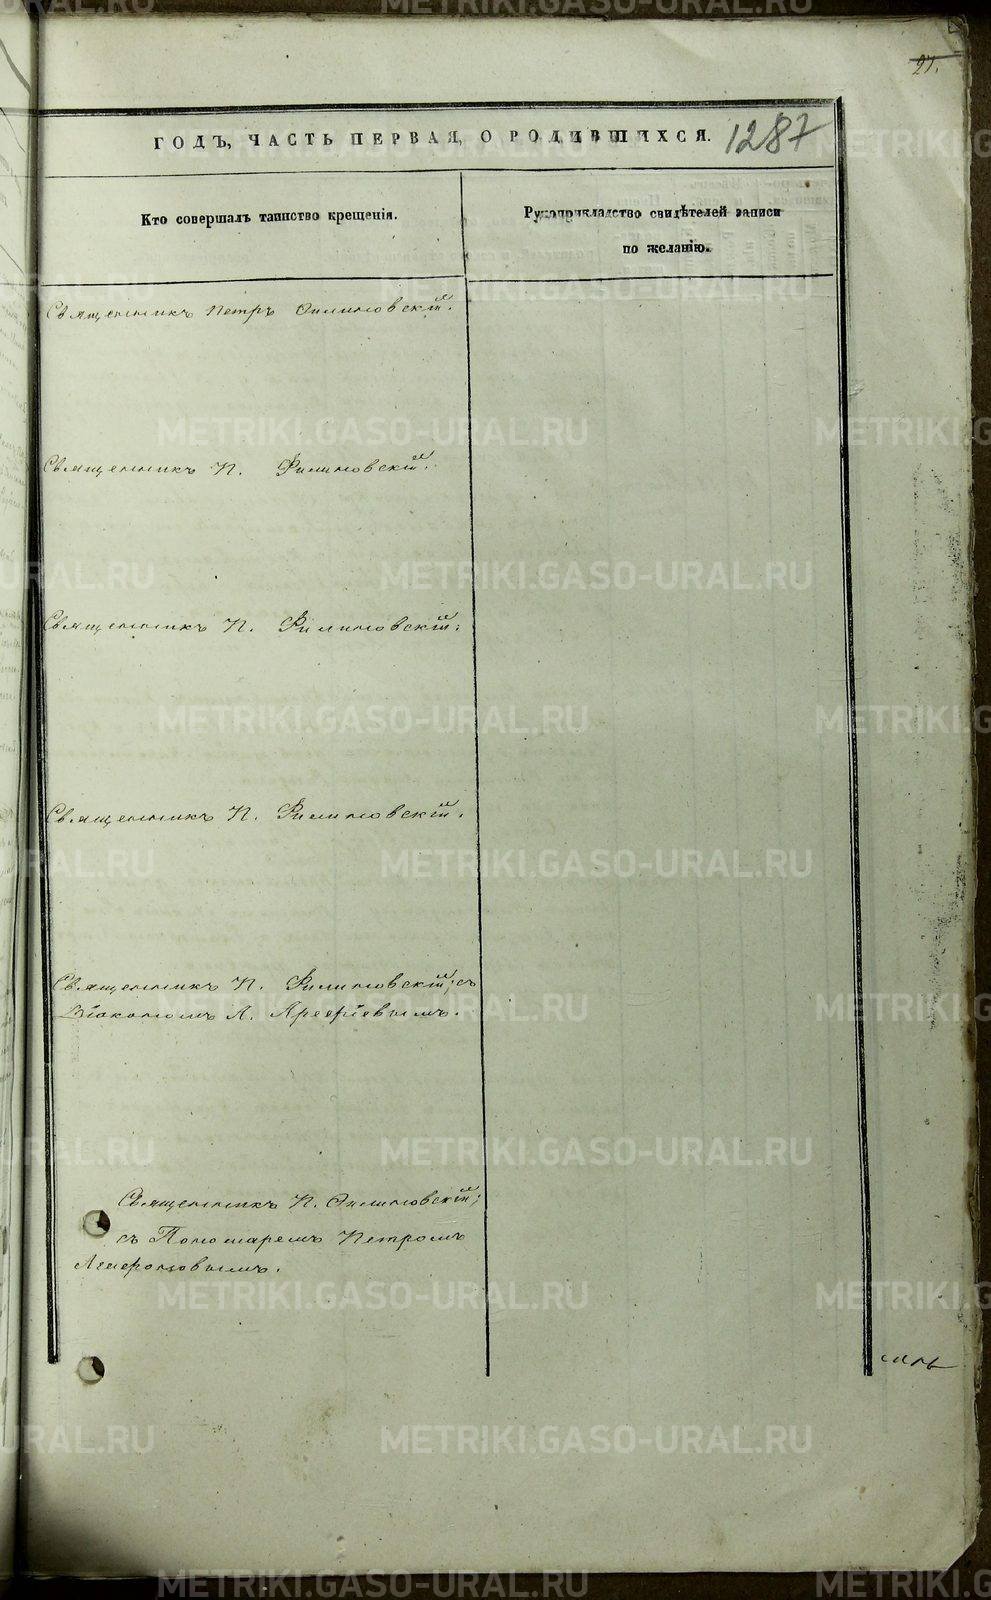 27.
ГОДЪ, ЧАСТЬ ПЕРВАЯ, О РОДИВШИХСЯ. 1287
Кто совершалъ таинство крещенія.
Рукоприкладство свидѣтелей записи
по желанію.
Священникъ Петръ Филиповскій.
Священникъ П. Филиповскій.
Священникъ П. Филиповскій.
Священникъ П. Филиповскій.
Священникъ П. Филиповскій; съ
Діакономъ А.
Священникъ П. Филиповскій;
съ Пономаремъ Петромъ
METRIKI.GASO-URAL.RU